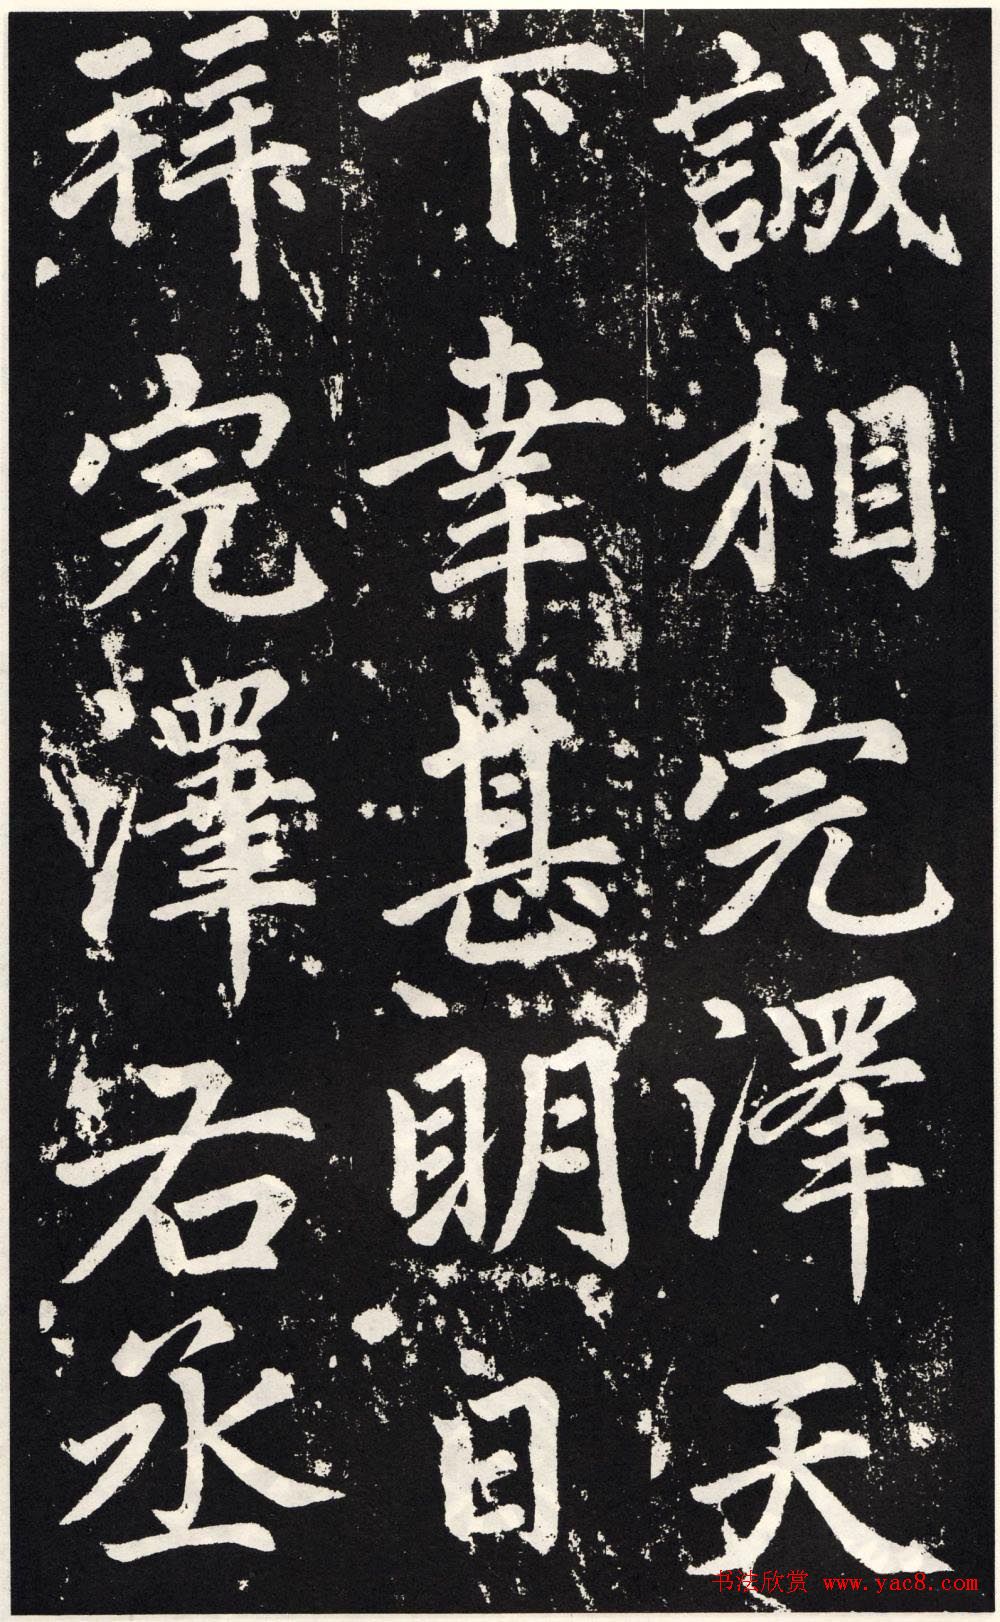 誠相完澤天
下幸甚明日
拜完澤右丞
书法欣赏 www.yac8.com